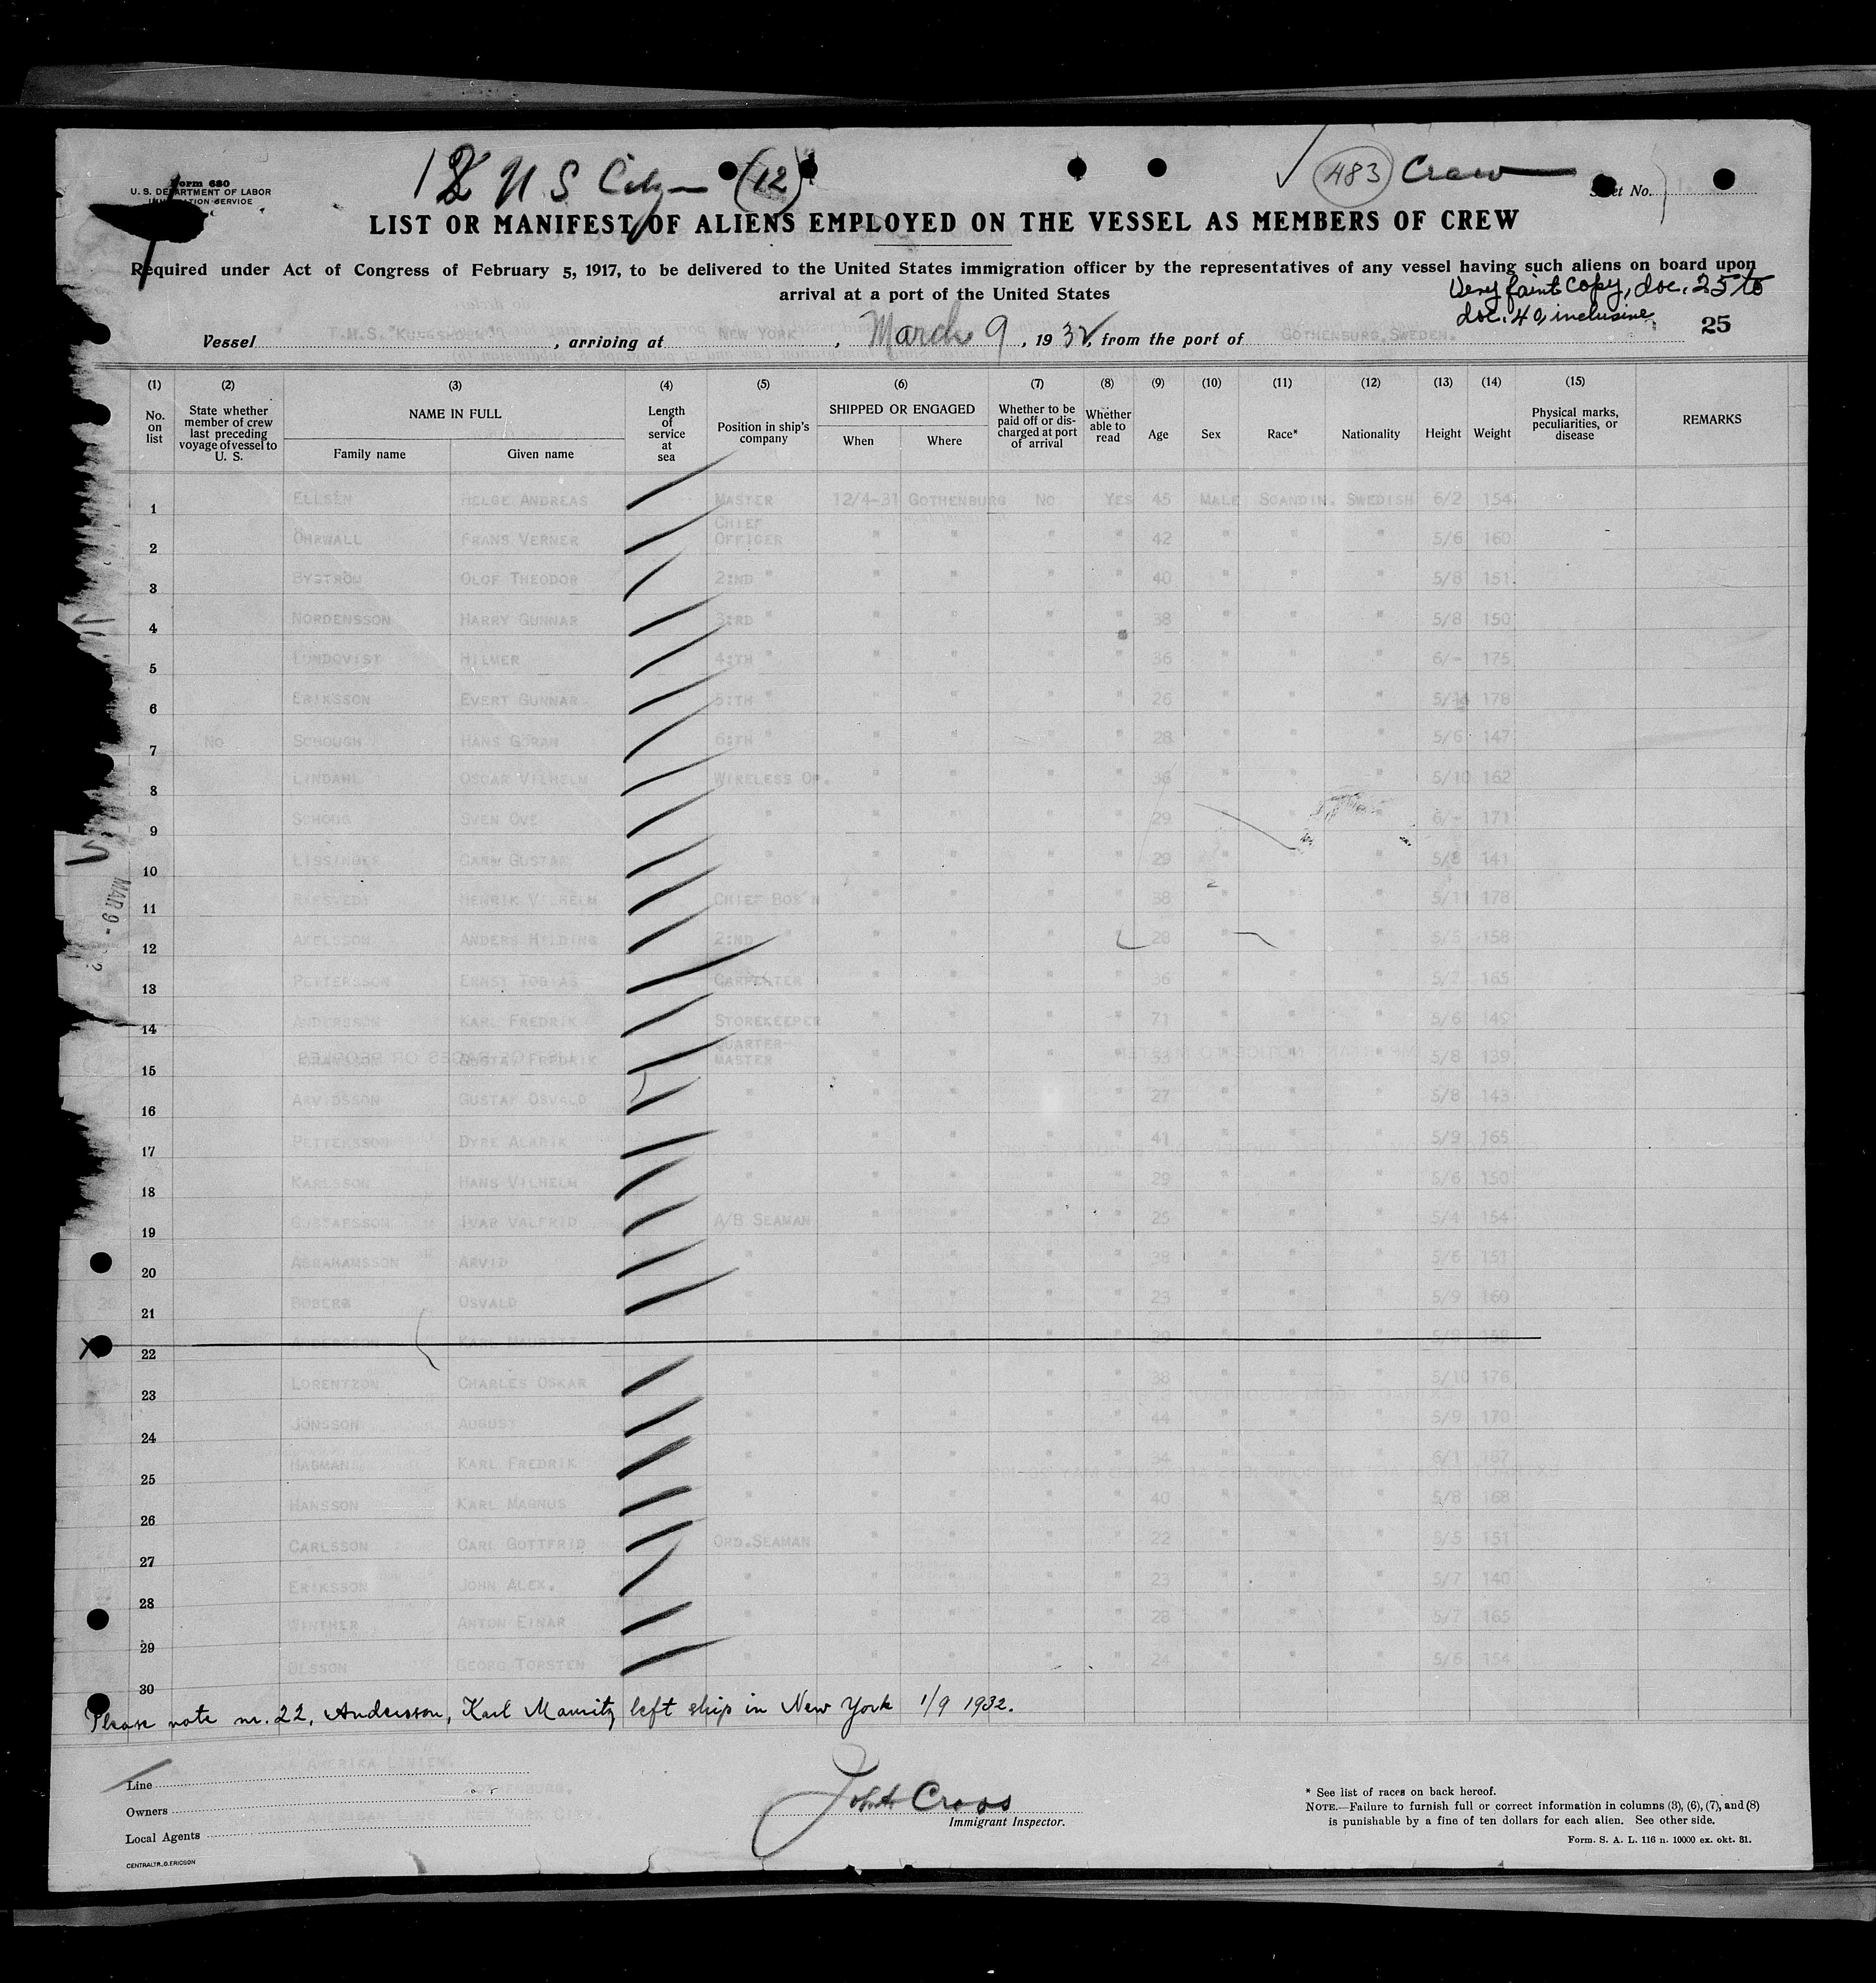 1 2 U S Citz (12) ✓ 483 Crew
Form 680
U. S. DEPARTMENT OF LABOR
IMMIGRATION SERVICE
Sheet No.
LIST OR MANIFEST OF ALIENS EMPLOYED ON THE VESSEL AS MEMBERS OF CREW
Required under Act of Congress of February 5, 1917, to be delivered to the United States immigration officer by the representatives of any vessel having such aliens on board upon
arrival at a port of the United States
Very faint copy, doc. 25 to
doc. 40 inclusive
25
Vessel T.M.S. "KUNGSHOLM", arriving at NEW YORK, March 9, 1932, from the port of GOTHENBURG, SWEDEN.
(1) (2) (3) (4) (5) (6) (7) (8) (9) (10) (11) (12) (13) (14) (15)
No. on list State whether member of crew last preceding voyage of vessel to U. S. NAME IN FULL Family name Given name Length of service at sea Position in ship's company SHIPPED OR ENGAGED When Where Whether to be paid off or discharged at port of arrival Whether able to read Age Sex Race* Nationality Height Weight Physical marks, peculiarities, or disease REMARKS
1 ELLSÉN HELGE ANDREAS MASTER 12/4-31 GOTHENBURG NO YES 45 MALE SCANDIN. SWEDISH 6/2 154
2 ÖHRWALL FRANS VERNER CHIEF OFFICER " " " " 42 " " " 5/6 160
3 BYSTRÖM OLOF THEODOR 2:ND " " " " " 40 " " " 5/8 151
4 NORDENSSON HARRY GUNNAR 3:RD " " " " " 38 " " " 5/8 150
5 LUNDQVIST HILMER 4:TH " " " " " 36 " " " 6/- 175
6 ERIKSSON EVERT GUNNAR 5:TH " " " " " 26 " " " 178
7 NO SCHOUGH HANS GÖRAN 6:TH " " " " " 28 " " " 5/6 147
8 LINDAHL OSCAR VILHELM WIRELESS OP. " " " " 36 " " " 5/10 162
9 SCHOUG SVEN OVE " " " " " 29 " " " 6/- 171
10 GUSTAF " " " " " 29 " " " 5/8 141
11 HENRIK VILHELM CHIEF BOS'N " " " " 38 " " " 5/11 178
12 AXELSSON ANDERS HILDING 2:ND " " " " " 28 " " " 5/5 158
13 PETTERSSON ERNST TOBIAS CARPENTER " " " " 36 " " " 5/7 165
14 ANDERSSON KARL FREDRIK STOREKEEPER " " " " 71 " " " 5/6 149
15 JOHANSSON GUSTAF FREDRIK QUARTER-MASTER " " " " 53 " " " 5/8 139
16 ARVIDSSON GUSTAF OSVALD " " " " " 27 " " " 5/8 143
17 PETTERSSON DYRE ALARIK " " " " " 41 " " " 5/9 165
18 KARLSSON HANS VILHELM " " " " " 29 " " " 5/6 150
19 GUSTAFSSON IVAR VALFRID A/B SEAMAN " " " " 25 " " " 5/4 154
20 ABRAHAMSSON ARVID " " " " " 38 " " " 5/6 151
21 BOBERG OSVALD " " " " " 23 " " " 5/9 160
22 ANDERSSON KARL MAURITZ " " " " " " " "
23 LORENTZON CHARLES OSKAR " " " " " 38 " " " 5/10 176
24 JONSSON AUGUST " " " " " 44 " " " 5/9 170
25 HAGMAN KARL FREDRIK " " " " " 34 " " " 6/1 187
26 HANSSON KARL MAGNUS " " " " " 40 " " " 5/8 168
27 CARLSSON CARL GOTTFRID ORD.SEAMAN " " " " 22 " " " 5/5 151
28 ERIKSSON JOHN ALEX. " " " " " 23 " " " 5/7 140
29 WINTHER ANTON EINAR " " " " " 28 " " " 5/7 165
30 OLSSON GEORG TORSTEN " " " " " 24 " " " 5/6 154
MAR 9 -
Please note nr. 22, Andersson, Karl Mauritz left ship in New York 1/9 1932.
Line AMERIKA LINIEN.
Owners " " GOTHENBURG.
Local Agents
CENTRALTR. G. ERICSON
John Croos
Immigrant Inspector.
* See list of races on back hereof.
NOTE.—Failure to furnish full or correct information in columns (3), (6), (7), and (8)
is punishable by a fine of ten dollars for each alien. See other side.
Form. S. A. L. 116 n. 10000 ex. okt. 31.